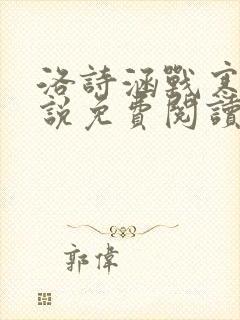 洛詩涵戰寒
說免費閱讀
郭偉